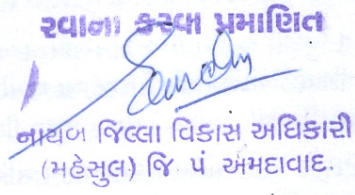 રવાના કરવા પ્રમાણિત
નાયબ જિલ્લા વિકાસ અધિકારી
(મહેસુલ) જિ પં અમદાવાદ.